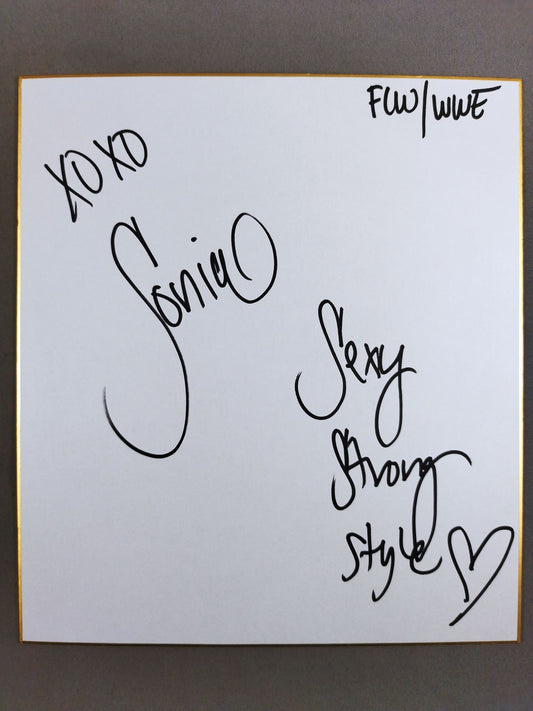 FCW/WWE
XOXO
Sonia
Sexy
Strong
Style